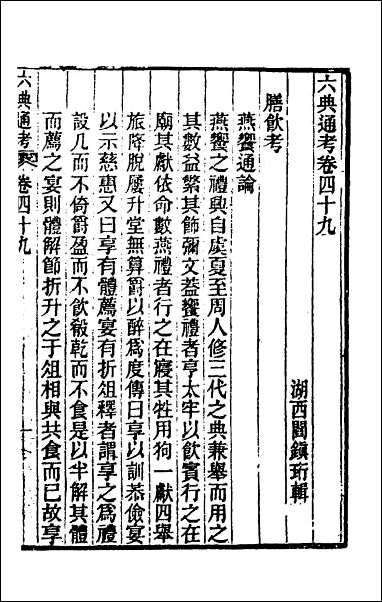 六典通考卷四十九
湖西閻鎮珩輯
膳飲考
燕饗通論
燕饗之禮興自虞夏至周人修三代之典兼舉而用之
其數益繁其節彌文葢饗禮者亨太牢以飲賓行之在
廟其獻依命數燕禮者行之在寢其牲用狗一獻四舉
旅降脫屨升堂無算爵以醉爲度傳曰享以訓恭儉宴
以示慈惠又曰享有體薦宴有折俎釋者謂享之爲禮
設几而不倚爵盈而不飲殽乾而不食是以半解其體
而薦之宴則體解節折升之于俎相與共食而已故享
六典通考 卷四十九